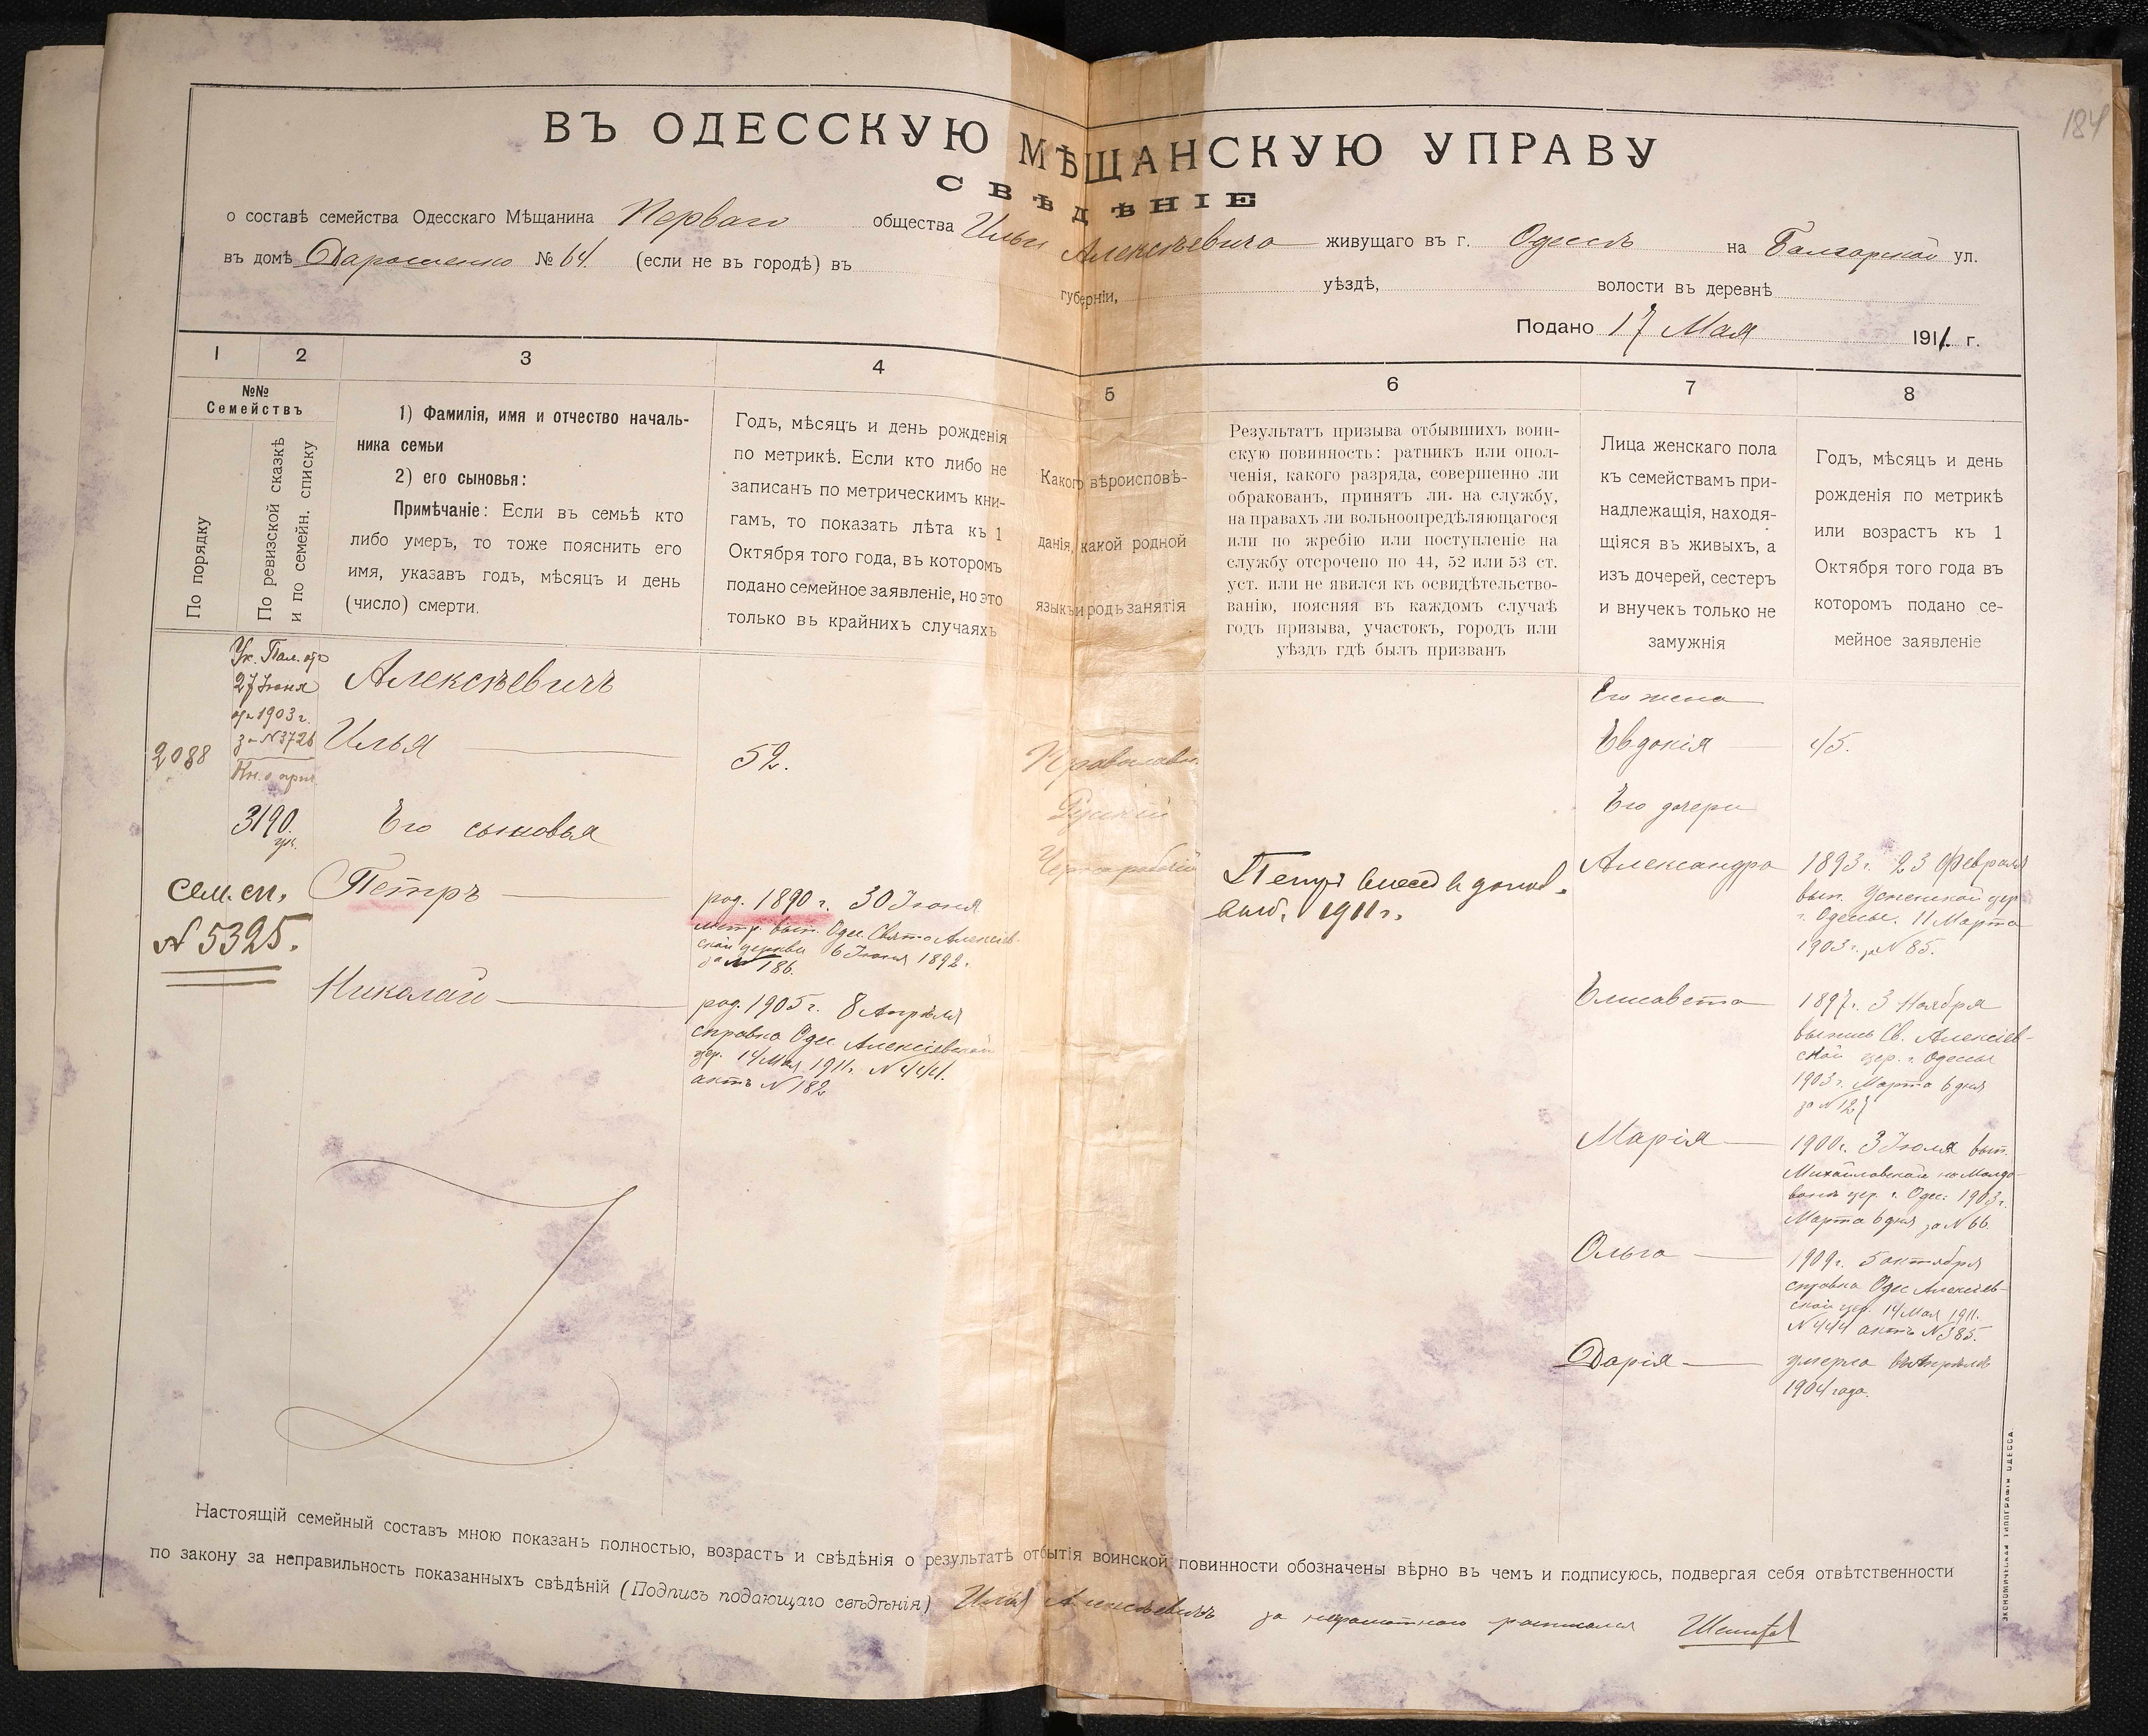 184
ВЪ ОДЕССКУЮ МѢЩАНСКУЮ УПРАВУ
СВѢДѢНІЕ
о составѣ семейства Одесскаго Мѣщанина Перваго общества Ильи Алексѣевича живущаго въ г. Одессѣ на Балгарской ул.
въ домѣ Дарошенко № 64. (если не въ городѣ) въ губерніи, уѣздѣ, волости въ деревнѣ
Подано 17 Мая 1911. г.
1 2 3 4 5 6 7 8
№№
Семействъ
По порядку
По ревизской сказкѣ
и по семейн. списку
1) Фамилія, имя и отчество началь-
ника семьи
2) его сыновья:
Примѣчаніе: Если въ семьѣ кто
либо умеръ, то тоже пояснить его
имя, указавъ годъ, мѣсяцъ и день
(число) смерти.
Годъ, мѣсяцъ и день рожденія
по метрикѣ. Если кто либо не
записанъ по метрическимъ кни-
гамъ, то показать лѣта къ 1
Октября того года, въ которомъ
подано семейное заявленіе, но это
только въ крайнихъ случаяхъ
Какого вѣроисповѣ-
данія, какой родной
языкъ и родъ занятія
Результатъ призыва отбывшихъ воин-
скую повинность: ратникъ или опол-
ченія, какого разряда, совершенно ли
обракованъ, принятъ ли на службу,
на правахъ ли вольноопредѣляющагося
или по жребію или поступленіе на
службу отсрочено по 44, 52 или 53 ст.
уст. или не явился къ освидѣтельство-
ванію, поясняя въ каждомъ случаѣ
годъ призыва, участокъ, городъ или
уѣздъ гдѣ былъ призванъ
Лица женскаго пола
къ семействамъ при-
надлежащія, находя-
щіяся въ живыхъ, а
изъ дочерей, сестеръ
и внучекъ только не
замужнія
Годъ, мѣсяцъ и день
рожденія по метрикѣ
или возрастъ къ 1
Октября того года въ
которомъ подано се-
мейное заявленіе
2088
Ук. Пал. отъ
27 Іюня
1903 г.
за N 3726
3190.
Сем. сп.
N 5325.
Алексѣевичъ
Илья
Его сыновья
Петръ
Николай
52.
род. 1890 г. 30 Іюня
метр. вып. Одес. Свято Алексіев-
ской церкви 6 Іюня 1892.
за N 186.
род. 1905 г. 8 Апрѣля
справка Одес. Алексіевской
цер. 14 Мая 1911 г. N 444.
актъ N 182
Православн.
Русскій
Чернорабочій
Петръ внесенъ
1911 г.
Его жена
Евдокія 45.
Его дочери
Александра
1893 г. 23 Февраля
вып. Успенской цер.
г. Одессы. 11 Марта
1903 г. за N 85.
Елисавета
1897 г. 3 Ноября
выпись Св. Алексіев-
ской цер. г. Одессы
1903 г. Марта 6 дня
за N 127
Марія
1900 г. 3 Іюля вып.
Михайловской на Молда-
ванкѣ цер. г. Одес. 1903 г.
Марта 6 дня за N 66.
Ольга
1909 г. 5 октября
справка Одес Алексіев-
ской цер. 14 Мая 1911.
N 444 актъ N 385.
Дарія
умерла въ Апрѣлѣ
1904 года.
Настоящій семейный составъ мною показанъ полностью, возрастъ и свѣдѣнія о результатѣ отбытія воинской повинности обозначены вѣрно въ чемъ и подписуюсь, подвергая себя отвѣтственности
по закону за неправильность показанныхъ свѣдѣній (Подпись подающаго свѣдѣнія) Илья Алексѣевичъ за неграмотнаго росписался
ЭКОНОМИЧЕСКАЯ ТИПОГРАФІЯ ОДЕССА.